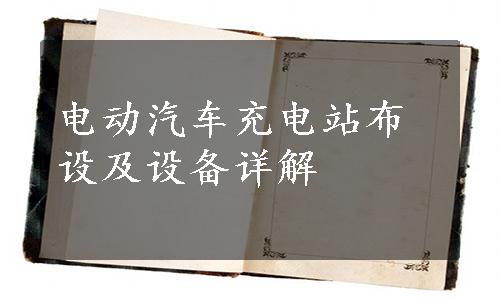 电动汽车充电站布
设及设备详解